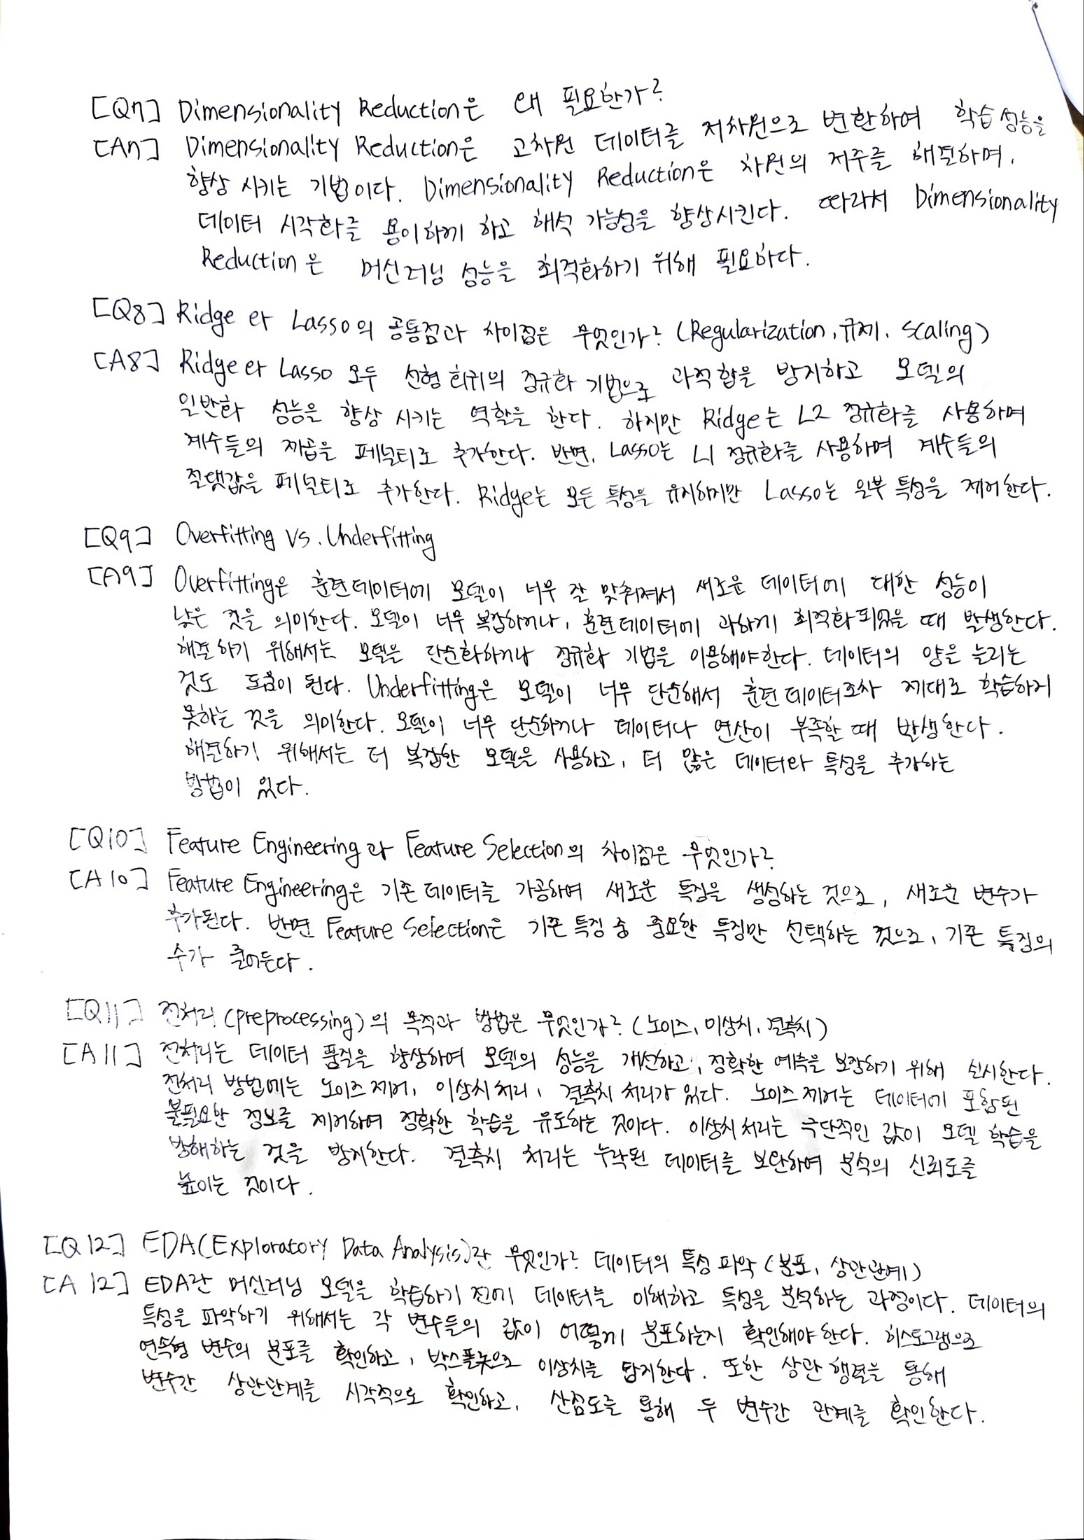 [Q7] Dimensionality Reduction은 왜 필요한가?
[A7] Dimensionality Reduction은 고차원 데이터를 저차원으로 변환하여 학습 성능을
향상 시키는 기법이다. Dimensionality Reduction은 차원의 저주를 해결하며,
데이터 시각화를 용이하게 하고 해석 가능성을 향상시킨다. 따라서 Dimensionality
Reduction은 머신러닝 성능을 최적화하기 위해 필요하다.
[Q8] Ridge와 Lasso의 공통점과 차이점은 무엇인가? (Regularization, 규제, scaling)
[A8] Ridge와 Lasso 모두 선형 회귀의 정규화 기법으로 과적합을 방지하고 모델의
일반화 성능을 향상 시키는 역할을 한다. 하지만 Ridge는 L2 정규화를 사용하며
계수들의 제곱을 페널티로 추가한다. 반면, Lasso는 L1 정규화를 사용하며 계수들의
절댓값을 페널티로 추가한다. Ridge는 모든 특성을 유지하지만 Lasso는 일부 특성을 제거한다.
[Q9] Overfitting vs. Underfitting
[A9] Overfitting은 훈련데이터에 모델이 너무 잘 맞춰져서 새로운 데이터에 대한 성능이
낮은 것을 의미한다. 모델이 너무 복잡하거나, 훈련데이터에 과하게 최적화되었을 때 발생한다.
해결하기 위해서는 모델을 단순화하거나 정규화 기법을 이용해야한다. 데이터의 양을 늘리는
것도 도움이 된다. Underfitting은 모델이 너무 단순해서 훈련 데이터조차 제대로 학습하지
못하는 것을 의미한다. 모델이 너무 단순하거나 데이터나 연산이 부족할 때 발생한다.
해결하기 위해서는 더 복잡한 모델을 사용하고, 더 많은 데이터와 특성을 추가하는
방법이 있다.
[Q10] Feature Engineering과 Feature Selection의 차이점은 무엇인가?
[A10] Feature Engineering은 기존 데이터를 가공하여 새로운 특징을 생성하는 것으로, 새로운 변수가
추가된다. 반면 Feature Selection은 기존 특징 중 중요한 특징만 선택하는 것으로, 기존 특징의
수가 줄어든다.
[Q11] 전처리(preprocessing)의 목적과 방법은 무엇인가? (노이즈, 이상치, 결측치)
[A11] 전처리는 데이터 품질을 향상하여 모델의 성능을 개선하고, 정확한 예측을 보장하기 위해 실시한다.
전처리 방법에는 노이즈 제거, 이상치 처리, 결측치 처리가 있다. 노이즈 제거는 데이터에 포함된
불필요한 정보를 제거하여 정확한 학습을 유도하는 것이다. 이상치 처리는 극단적인 값이 모델 학습을
방해하는 것을 방지한다. 결측치 처리는 누락된 데이터를 보완하여 분석의 신뢰도를
높이는 것이다.
[Q12] EDA(Exploratory Data Analysis)란 무엇인가? 데이터의 특성 파악 (분포, 상관관계)
[A12] EDA란 머신러닝 모델을 학습하기 전에 데이터를 이해하고 특성을 분석하는 과정이다. 데이터의
특성을 파악하기 위해서는 각 변수들의 값이 어떻게 분포하는지 확인해야 한다. 히스토그램으로
연속형 변수의 분포를 확인하고, 박스플롯으로 이상치를 탐지한다. 또한 상관 행렬을 통해
변수간 상관관계를 시각적으로 확인하고, 산점도를 통해 두 변수간 관계를 확인한다.